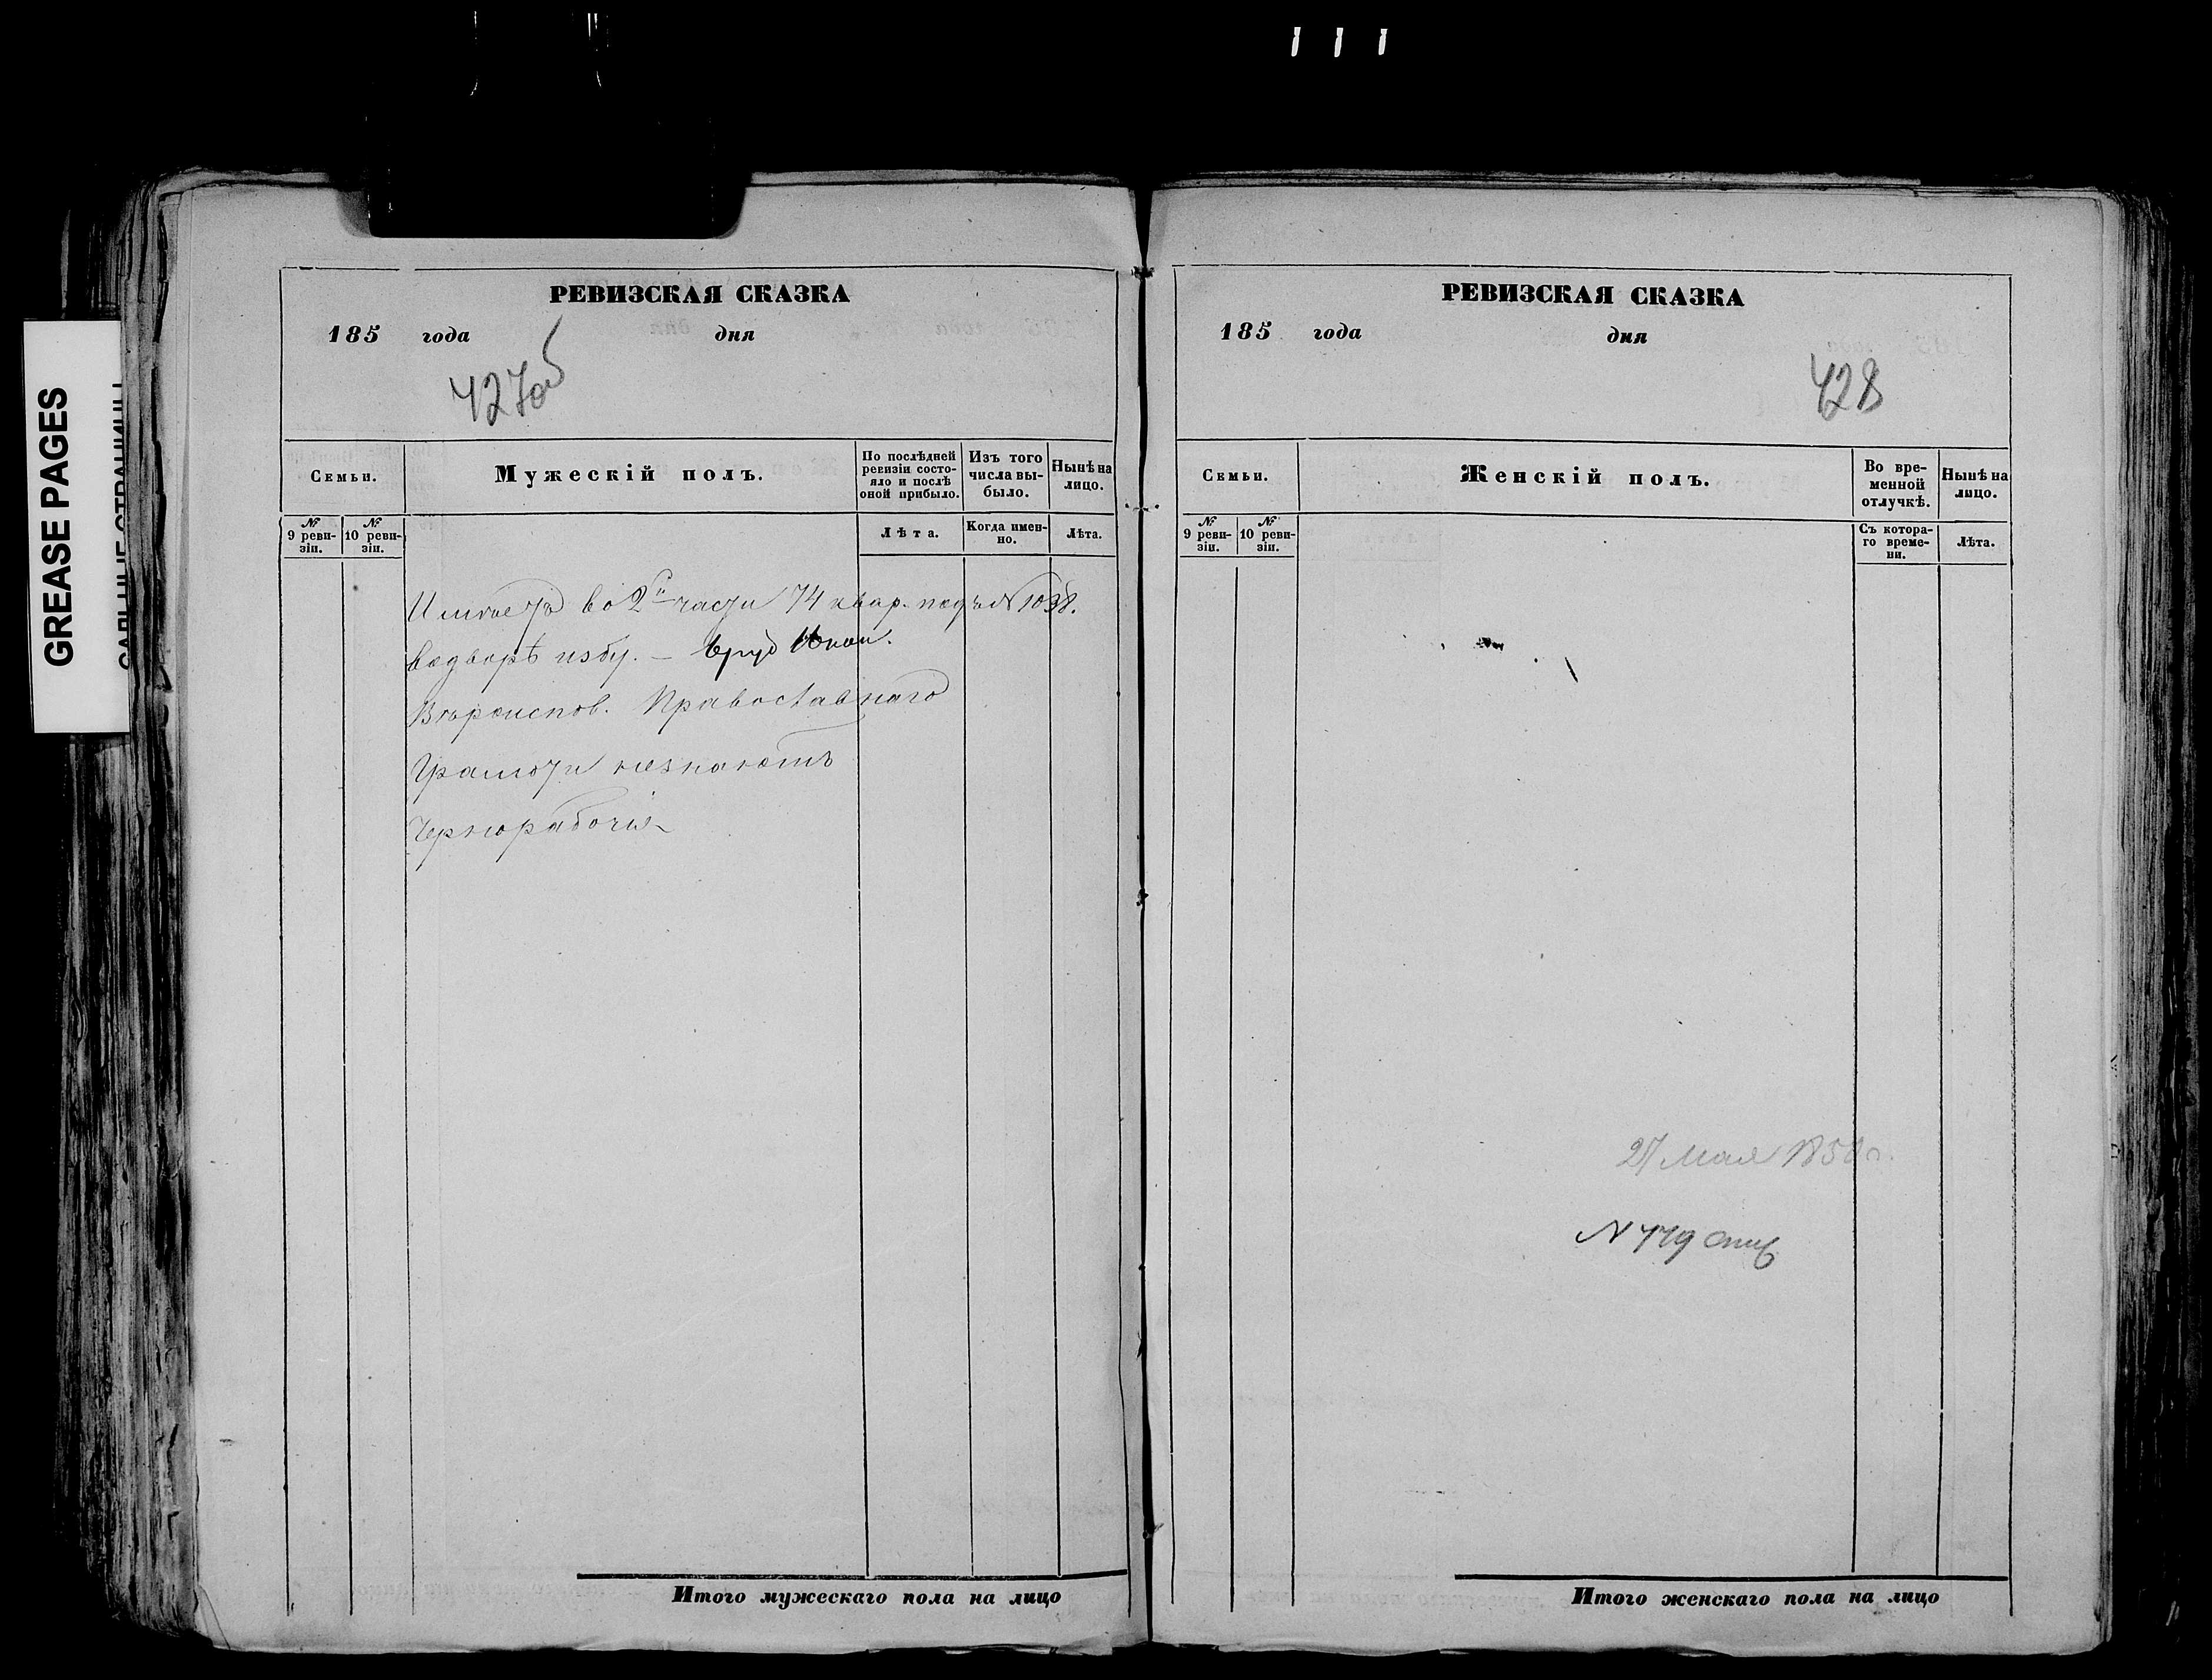 GREASE PAGES
РЕВИЗСКАЯ СКАЗКА
185 года дня
427об
Семьи.
Мужескій полъ.
По послѣдней ревизіи состояло и послѣ оной прибыло.
Изъ того числа выбыло.
Нынѣ на лицо.
№ 9 ревизіи.
№ 10 ревизіи.
Лѣта.
Когда именно.
Лѣта.
Имѣетъ во 2й части 74 квар. подъ № 1038.
водворѣ избу. –
Вѣроиспов. Православнаго
Грамоти незнаютъ
Чернорабочія
Итого мужескаго пола на лицо
РЕВИЗСКАЯ СКАЗКА
185 года дня
428
Семьи.
Женскій полъ.
Во временной отлучкѣ.
Нынѣ на лицо.
№ 9 ревизіи.
№ 10 ревизіи.
Съ котораго времени.
Лѣта.
27 Мая 1858 г.
Итого женскаго пола на лицо